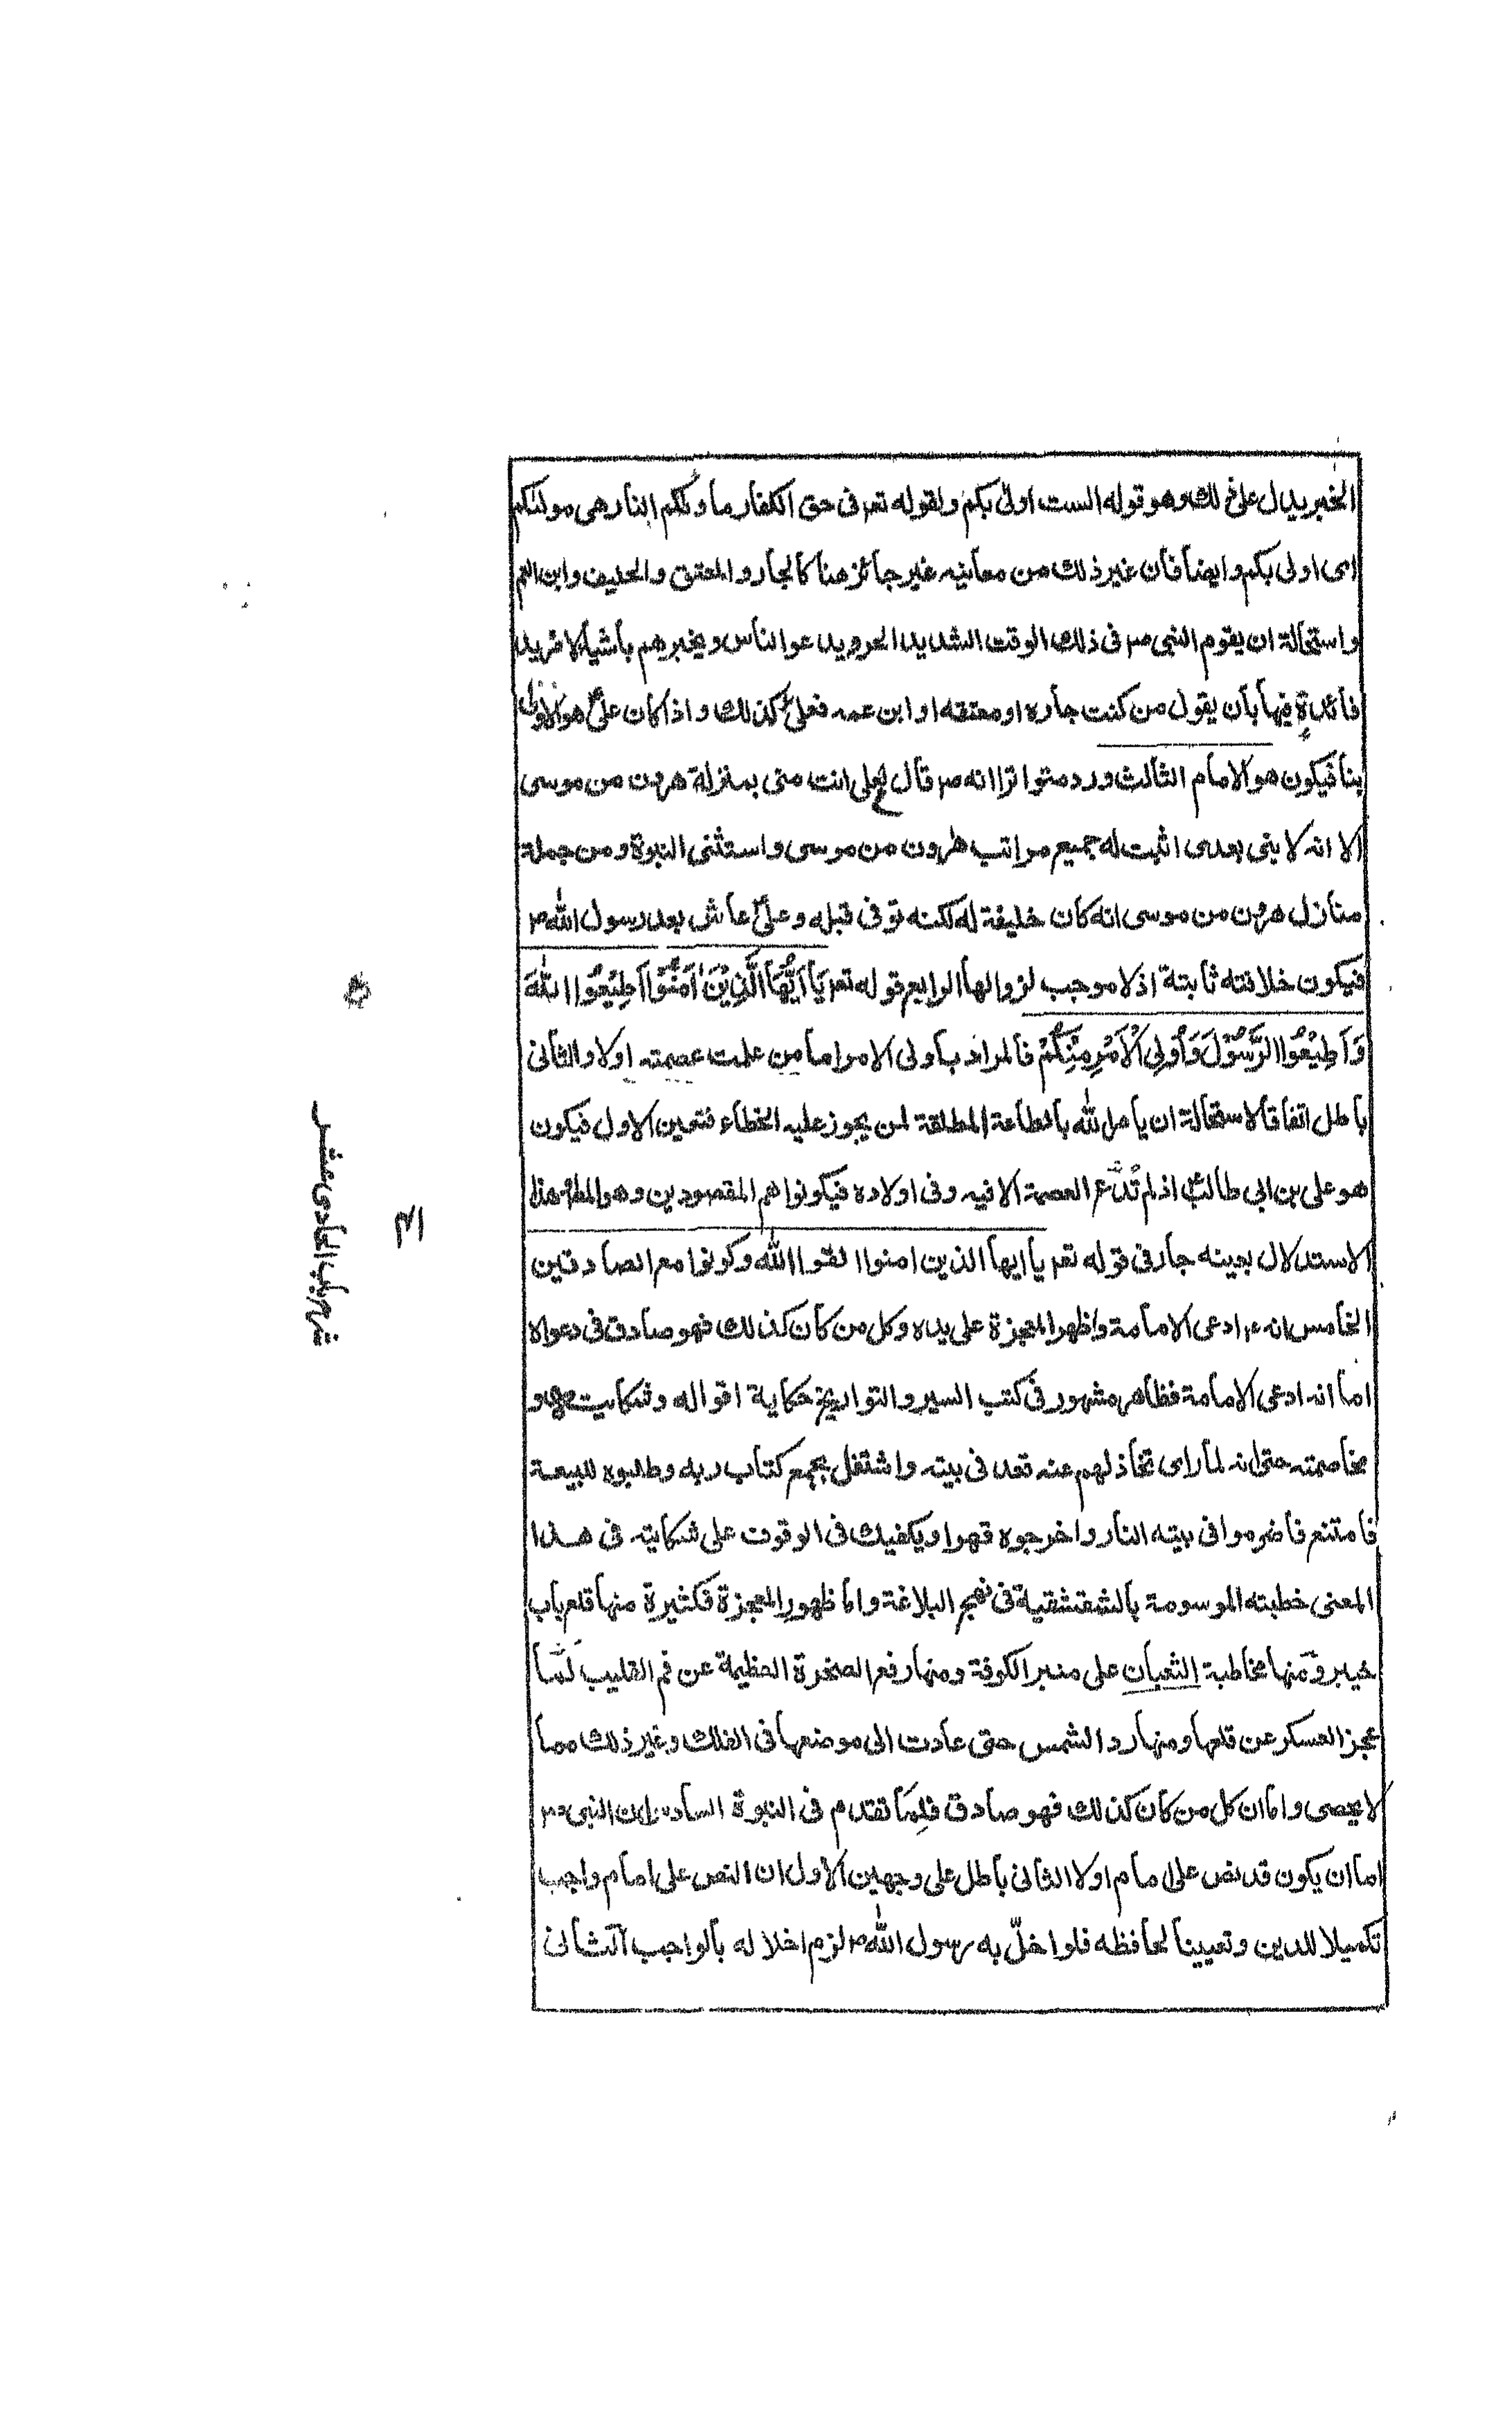 الخبر يدل على ذلك وهو قوله الست اولى بكم ولقوله تعر فى حق الكفار ماوٰىكم النار هى مولىٰكم
اى اولى بكم وايضا فان غير ذلك من معانيه غير جائز هنا كالجار والمعتق والحليف وابن العم
واستحالة ان يقوم النبى ص فى ذلك الوقت الشديد الحر ويدعوا الناس ويخبرهم باشياء لا مزيد
فائدة فيها بان يقول من كنت جاره او معتقه او ابن عمه فعلىؑ كذلك واذا كان علىؑ هو الاولى
بنا فيكون هو الامام الثالث ورد متواترا انه ص قال لعلى انت منى بمنزلة هرون من موسى
الا انه لا نبى بعدى اثبت له جميع مراتب هارون من موسى واستثنى النبوة ومن جملة
منازل هرون من موسى انه كان خليفة له لكنه توفى قبله وعلىؑ عاش بعد رسول الله ص
فيكون خلافته ثابتة اذ لا موجب لزوالها الرابع قوله تعر يَا اَيُّهَا الَّذِيْنَ اٰمَنُوْا اَطِيْعُوا اللّٰهَ
وَاَطِيْعُوا الرَّسُوْلَ وَاُولِى الْاَمْرِ مِنْكُمْ فالمراد باولى الامر اما من علمت عصمته اولا والثانى
باطل اتفاقا لاستحالة ان يامر الله بالطاعة المطلقة لمن يجوز عليه الخطاء فتعين الاول فيكون
هو على بن ابى طالبؑ اذ لم تُدَّع العصمة الا فيه وفى اولاده فيكونوا هم المقصودين وهو المطؔ هذا
الاستدلال بعينه جار فى قوله تعر يا ايها الذين امنوا اتقوا الله وكونوا مع الصادقين
الخامس انه ع ادعى الامامة واظهر المعجزة على يده وكل من كان كذلك فهو صادق فى دعواه
اما انه ادعى الامامة فظاهر مشهور فى كتب السير والتواريخ حكاية اقواله وشكايته و
مخاصمته حتى انه لما راى تخاذلهم عنه قعد فى بيته واشتغل بجمع كتاب ربه وطلبوه للبيعة
فامتنع فاضرموا فى بيته النار واخرجوه قهرا ويكفيك فى الوقوف على شكايته فى هذا
المعنى خطبته الموسومة بالشقشقية فى نهج البلاغة واما ظهور المعجزة فكثيرة منها قلع باب
خيبر ومنها مخاطبة الثعبان على منبر الكوفة ومنها رفع الصخرة العظيمة عن فم القليب لَمَّا
عجز العسكر عن قلعها ومنها رد الشمس حتى عادت الى موضعها فى الفلك وغير ذلك مما
لا يحصى واما ان كل من كان كذلك فهو صادق فلِمَا تقدم فى النبوة السادس ان النبى ص
اما ان يكون قد نص على امام اولا الثانى باطل على وجهين الاول ان النص على امام واجب
تكميلا للدين وتعيينا لحافظه فلو اخلّ به رسول الله ص لزم اخلاله بالواجب الثانى
شرح باب الحادى عشر